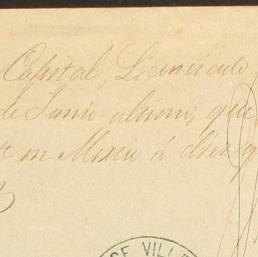 Capital, Licenciado
de Junio ultimo, que
en Mexico á diez y
SE VILLE